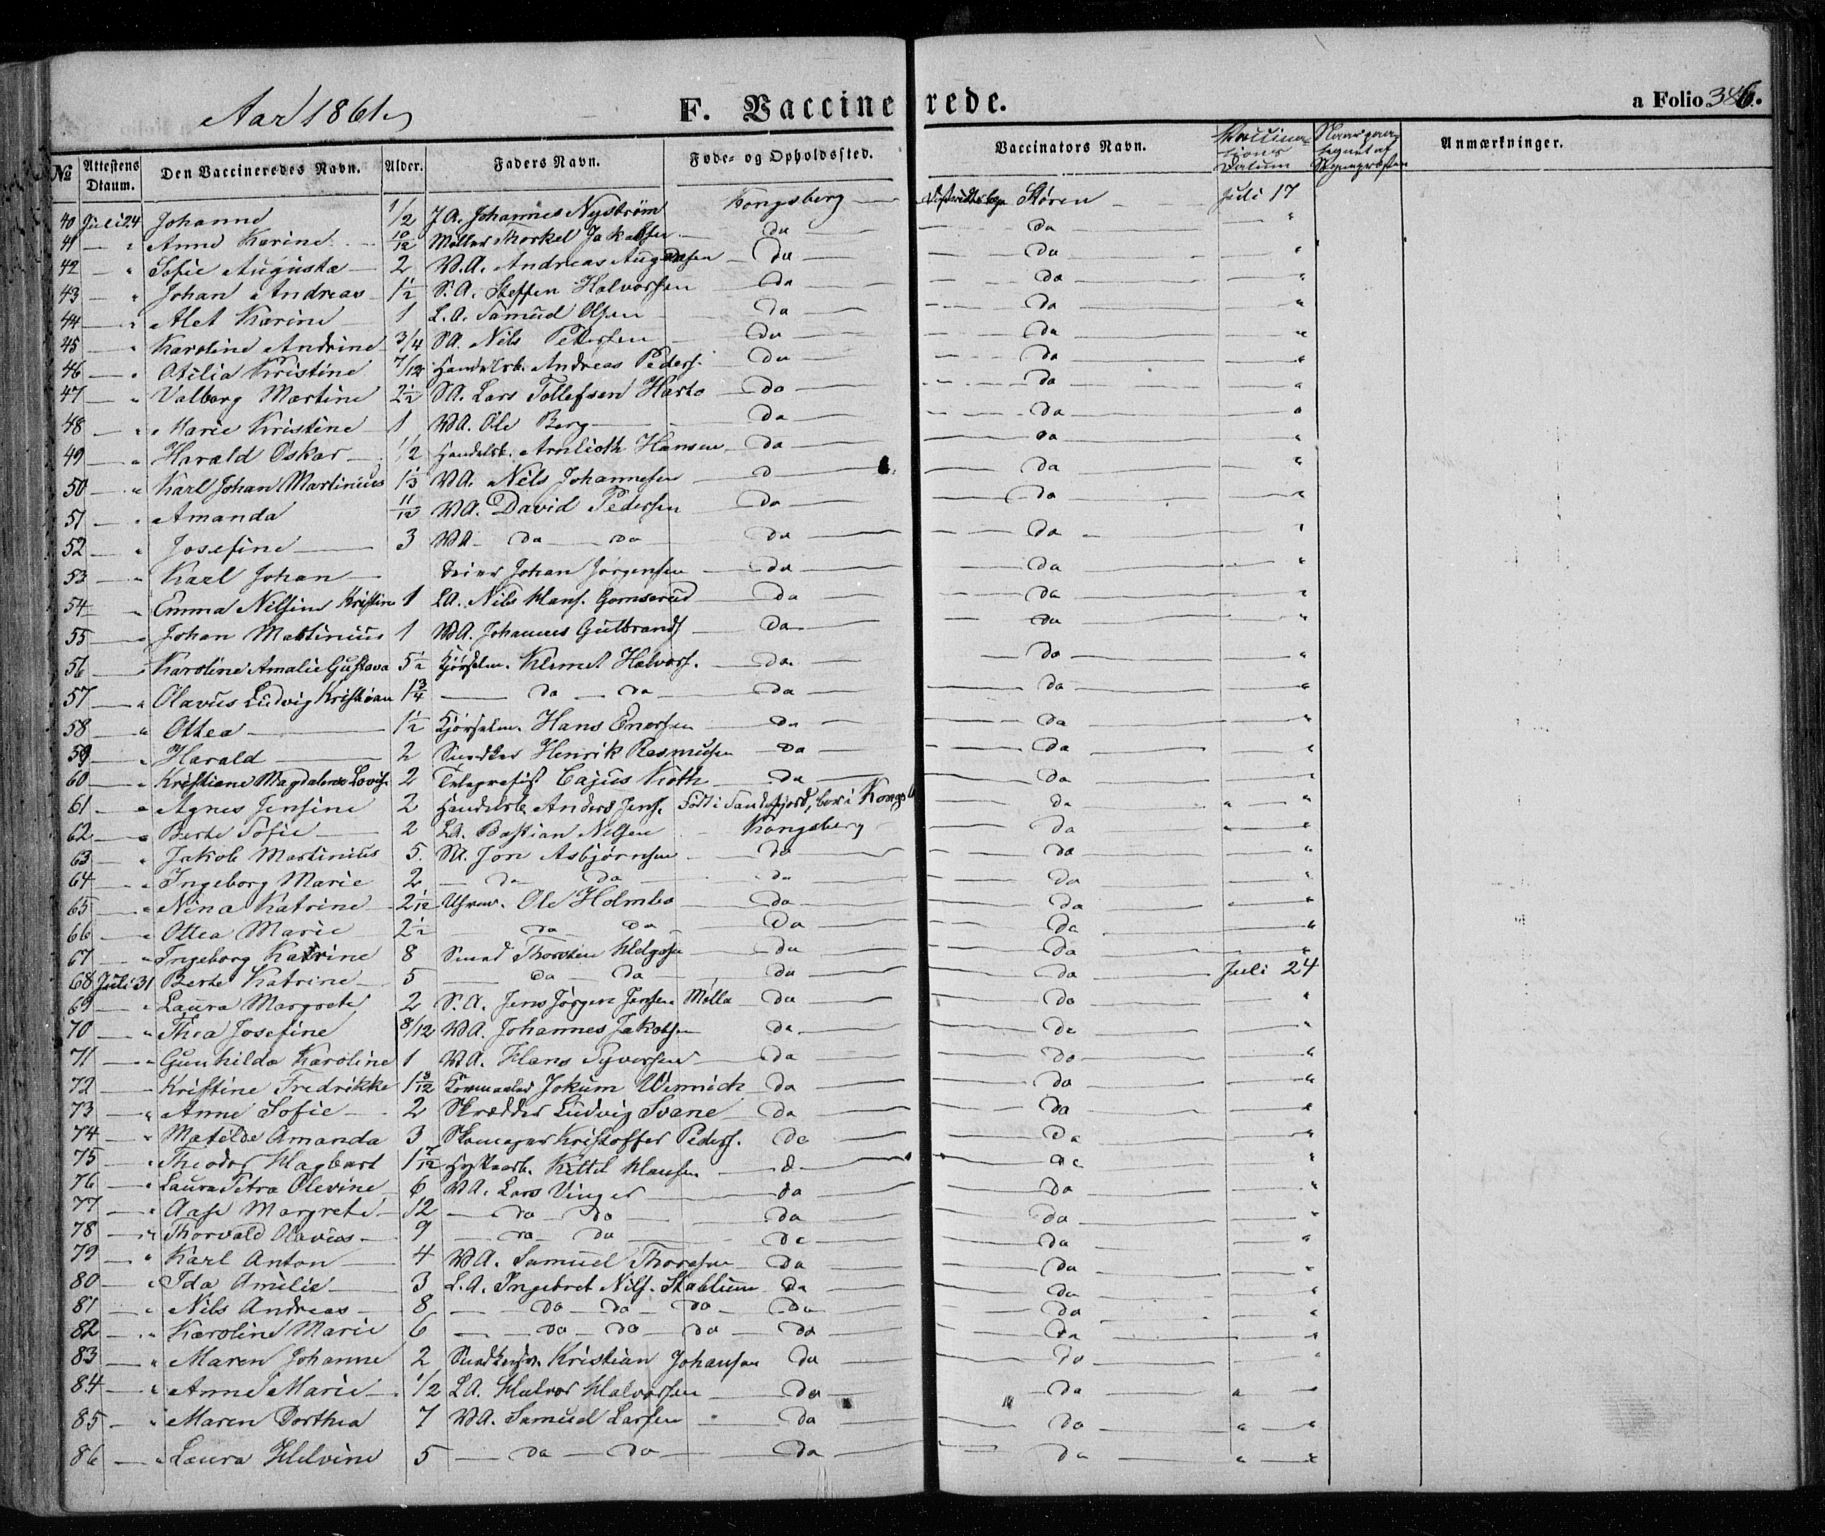 Aar 1861. F. Vaccinerede. a Folio 346.
№ Attestens Dtaum. Den Vaccineredes Navn. Alder. Faders Navn. Føde- og Opholdssted. Vaccinators Navn. Vaccinations Datum Anmærkninger.
40 Juli 24 Johanne 1/2 J A. Johannes Nystrøm Kongsberg Støren Juli 17
41 — " Anne Karine 10/12 Møller Thorkel Jakobsen Do Do "
42 — " Sofie Augusta 2 B.A. Andreas Do Do "
43 — " Johan Andreas 1½ S.A. Steffen Halvorsen Do Do "
44 — " Alet Karine 1 L.A. Samuel Olsen Do Do "
45 — " Karoline Andrine 3/4 SA. Nils Pettersen Do Do "
46 — " Otilia Kristine 7/12 Handelsb. Andreas Peders. Do Do "
47 — " Valborg Martine 2½ SA. Lars Tollefsen Do Do "
48 — " Marie Kristine 1 BA. Ole Berg Do Do "
49 — " Harald Oskar 1/2 Handelsb. Hansen Do Do "
50 — " Karl Johan Martinius 1/3 BA. Nils Johannesen D Do "
51 — " Amanda 11/12 BA. David Pedersen Do Do "
52 — " Josefine 3 BA Do Do Do Do "
53 — " Karl Johan Johan Jørgensen Do Do "
54 — " Emma Nilsine Kristine 1 LA. Nils Hans. Gomserud Do Do "
55 — " Johan Martinius 1 BA. Johannes Gulbrands Do Do "
56 — " Karoline Amalie Gustava 5½ Kjørselm. Klemet Halvors. Do Do "
57 — " Olavus Ludvig Kristian 1¾ Do Do Do Do "
58 — " Ottea 1½ Kjørselm. Hans Enersen Do Do "
59 — " Harald 2 Snedker Henrik Rasmusen Do Do "
60 — " Kristiane Magdalene Lovise 2 Telegrafist Cajus Koth Do Do "
61 — " Agnes Jensine 2 Handelsb. Anders Jens. Født i Sandefjord, bor i Kongsb Do "
62 — " Berte Sofie 2 LA. Bastian Nilsen Kongsberg Do "
63 — " Jakob Martinius 5. SA. Jon Asbjørnsen Do Do "
64 — " Ingeborg Marie 2 Do Do Do Do "
65 — " Nina Katrine 2 1/12 Uhrm. Ole Holmbo Do Do "
66 — " Ottea Marie 2½ Do Do Do Do "
67 — " Ingeborg Katrine 8 Smed Thorsten Helgesen Do Do "
68 Juli 31 Berte Katrine 5 Do Do Do Do Juli 24
69 " Laura Margrete 2 S.A. Jens Jørgen Jensen Mølla Do Do "
70 — " Thea Josefine 8/12 BA. Johannes Jakobsen Do Do "
71 — " Gunhilda Karoline 1 BA. Hans Syversen Do Do "
72 — " Kristine Fredrikke Jokum Do Do "
73 — " Anne Sofie 2 Skrædder Ludvig Svane Do Do "
74 — " Matilde Amanda 3 Skomager Kristoffer Peders. Do Do "
75 — " Theodor Hagbart 1 7/12 Hyttearb. Kittel Hansen D Do "
76 — " Laura Petra Olevine 6 BA. Lars Vinger Do Do "
77 — " Aase Margrete 12 Do Do Do Do "
78 — " Thorvald Olavus 9 Do Do Do Do "
79 — " Karl Anton 4 BA. Samuel Thoresen Do Do "
80 — " Ida Amilie 3 L.A. Ingebret Nils. Do Do "
81 — " Nils Andreas 8 Do Do Do Do Do "
82 — " Karoline Marie 6 Do Do Do Do Do "
83 — " Maren Johanne 2 Kristian Johansen Do Do "
84 — " Anne Marie 1/2 LA. Halvor Halvorsen Do Do "
85 — " Maren Dorthea 7 BA. Samuel Larsen " Do Do "
86 — " Laura Helvine 5 Do Do Do Do "